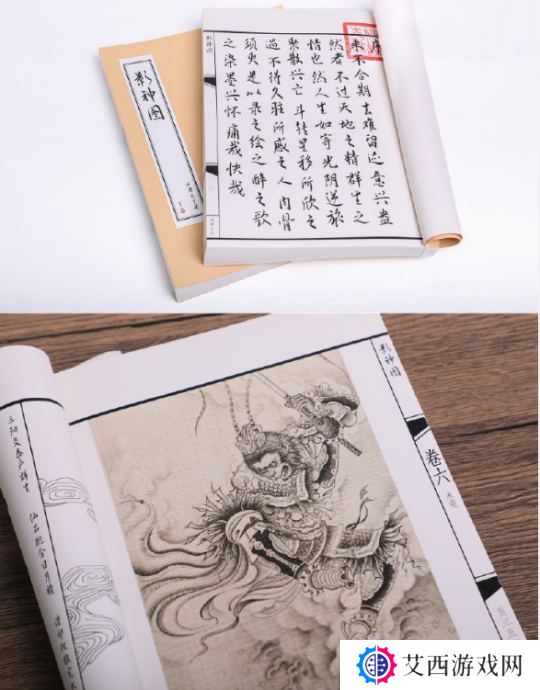 影神图
影神图
序
来不合期去难留迩意兴盎
然者不过天地之精群生之
情也然人生如寄光阴逆旅
聚散兴亡斗转星移所欣之
遇不得久驻所感之人肉骨
须臾是以录之绘之醉之歌
之染墨兴怀痛哉快哉
影神图
卷六
三阳交泰产群生
仙石胞含日月精
借卵化猴完大
艾西游戏网